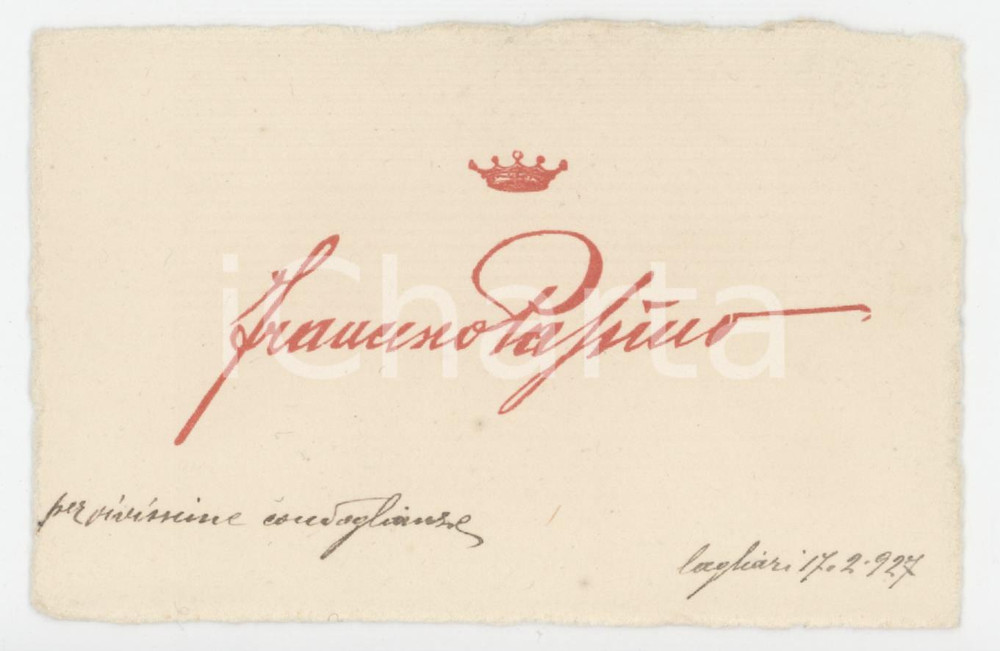 Francesco Passino
iCharta
per vivissime condoglianze
Cagliari 17.2.927